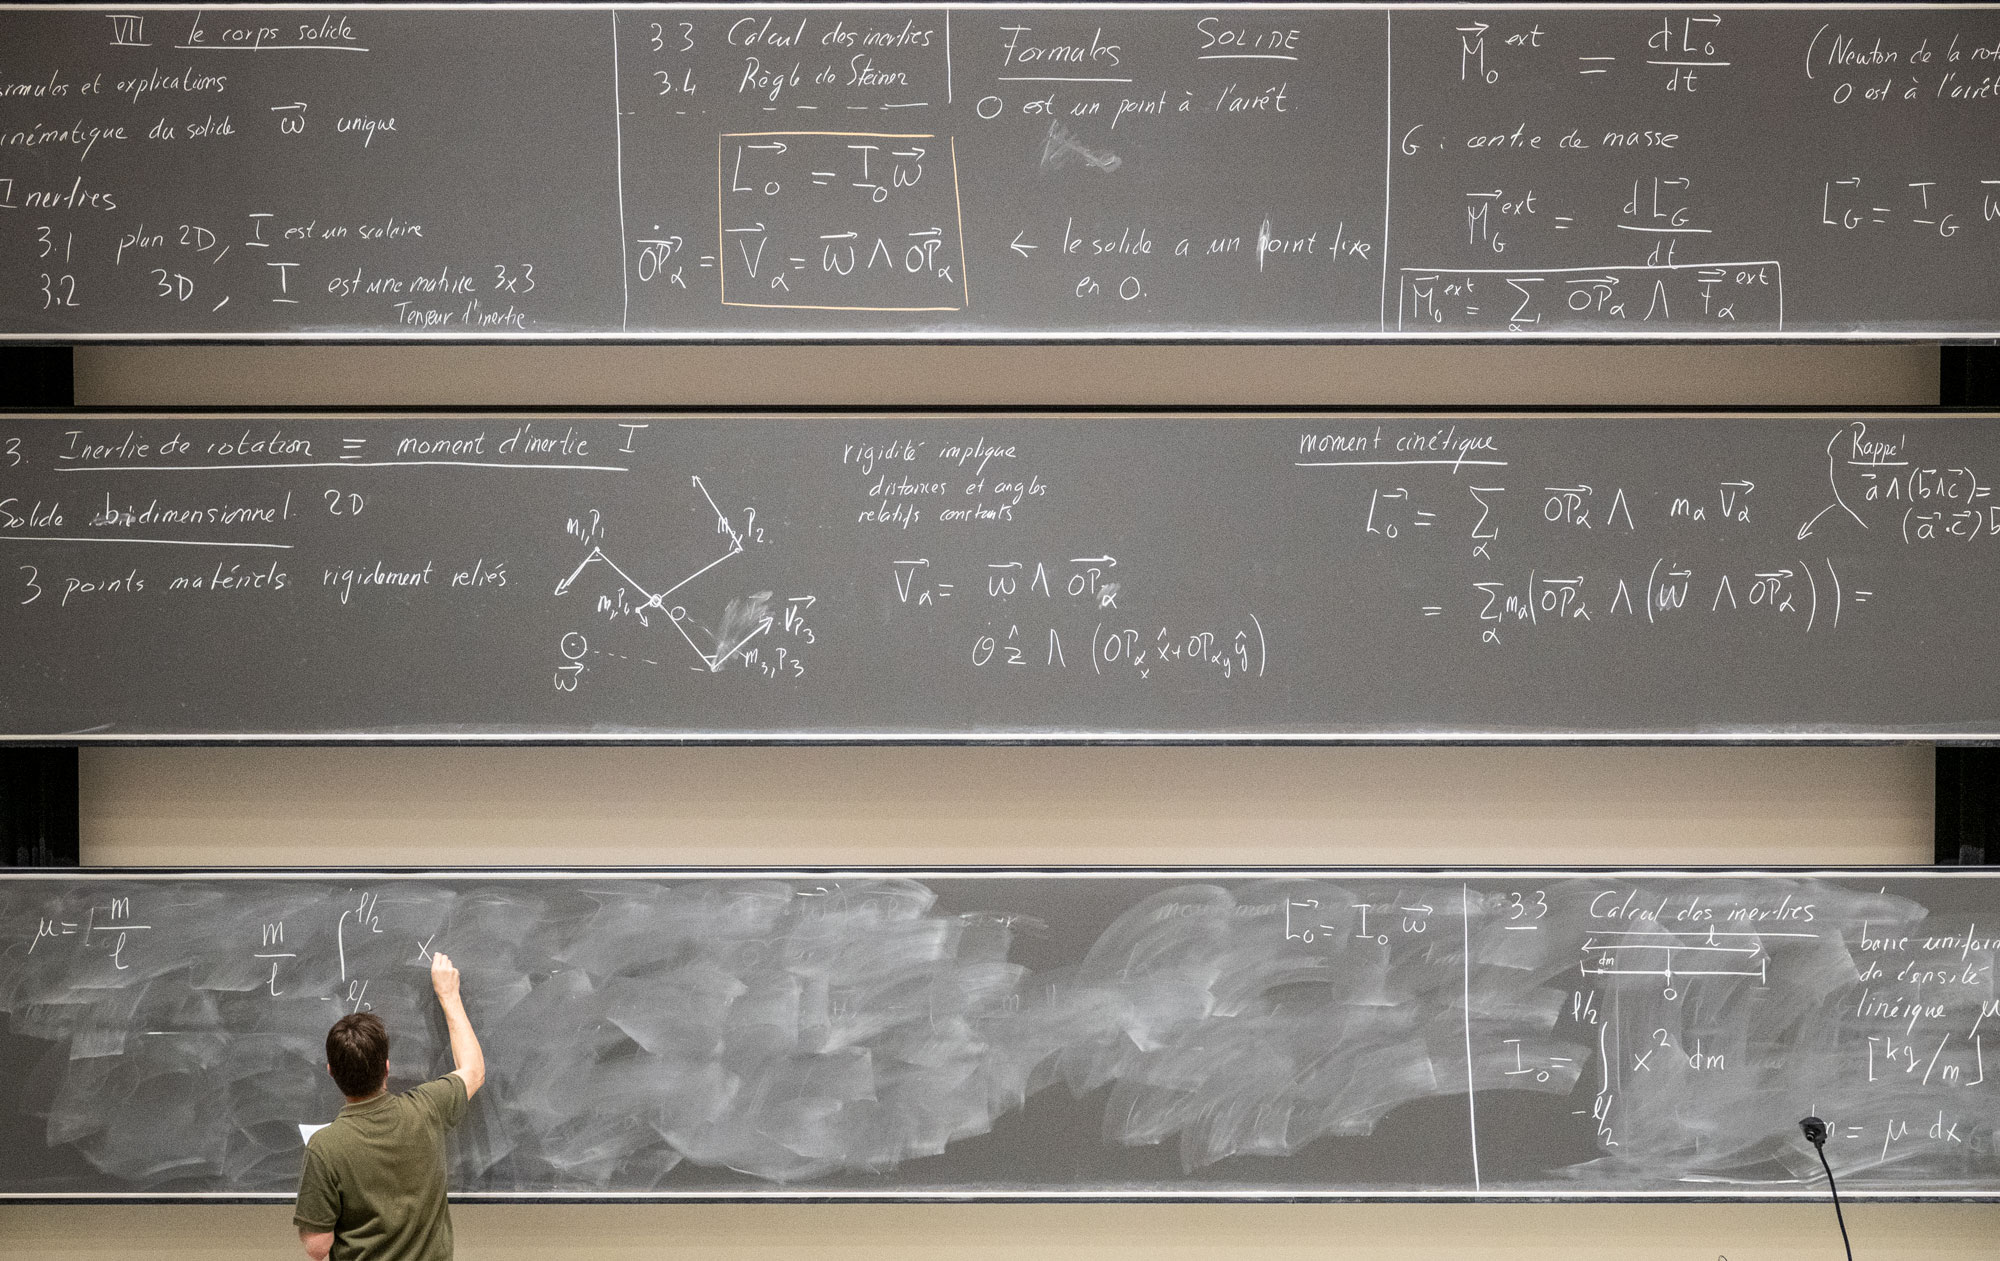 VII le corps solide
rmules et explications
inématique du solide ω⃗ unique
Inerties
3.1 plan 2D, I est un scalaire
3.2 3D, I est une matrice 3x3
Tenseur d'inertie.
3.3 Calcul des inerties
3.4 Règle de Steiner
L⃗₀ = I₀ ω⃗
OP⃗̇α = V⃗α = ω⃗ ∧ OP⃗α
Formules SOLIDE
O est un point à l'arrêt.
← le solide a un point fixe
en O.
M⃗₀ᵉˣᵗ = dL⃗₀/dt
(Newton de la rot
O est à l'arrêt
G : centre de masse
M⃗Gᵉˣᵗ = dL⃗G/dt
L⃗G = I_G ω
M⃗₀ᵉˣᵗ = Σα OP⃗α ∧ F⃗αᵉˣᵗ
3. Inertie de rotation ≡ moment d'inertie I
Solide bidimensionnel 2D
3 points matériels rigidement reliés.
m₁,P₁
m, P₂
O
V⃗P₃
m₃, P₃
ω⃗
rigidité implique
distances et angles
relatifs constants
V⃗α = ω⃗ ∧ OP⃗α
θ̇ ẑ ∧ (OPαₓ x̂ + OPα_y ŷ)
moment cinétique
L⃗₀ = Σα OP⃗α ∧ mα V⃗α
= Σα mα(OP⃗α ∧ (ω⃗ ∧ OP⃗α)) =
Rappel
a⃗ ∧ (b⃗ ∧ c⃗) =
(a⃗·c⃗) b
μ = m/l
m/l ∫_{-l/2}^{l/2} x
L⃗₀ = I₀ ω⃗
3.3 Calcul des inerties
l
dm
O
barre uniform
de densité
linéique μ
[kg/m]
I₀ = ∫_{-l/2}^{l/2} x² dm
m = μ dx